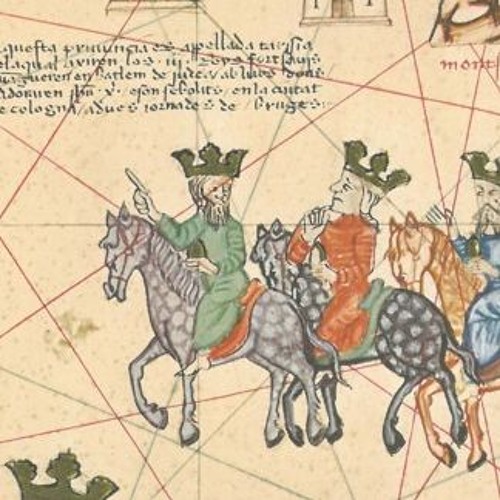 questa prouincia es apellada tarssia
elaqual axiren los .iii. reys fort sauis
uagueren en batlem de iudea / ab lurs dons
adoraren ihu .x. eson sebolits / enla ciutat
e cologna / adues iornades de bruges
mont